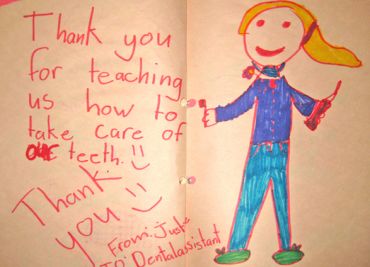 Thank you
for teaching
us how to
take care of
our teeth. :)
Thank :)
you
From: Just
TO: Dentalassistant